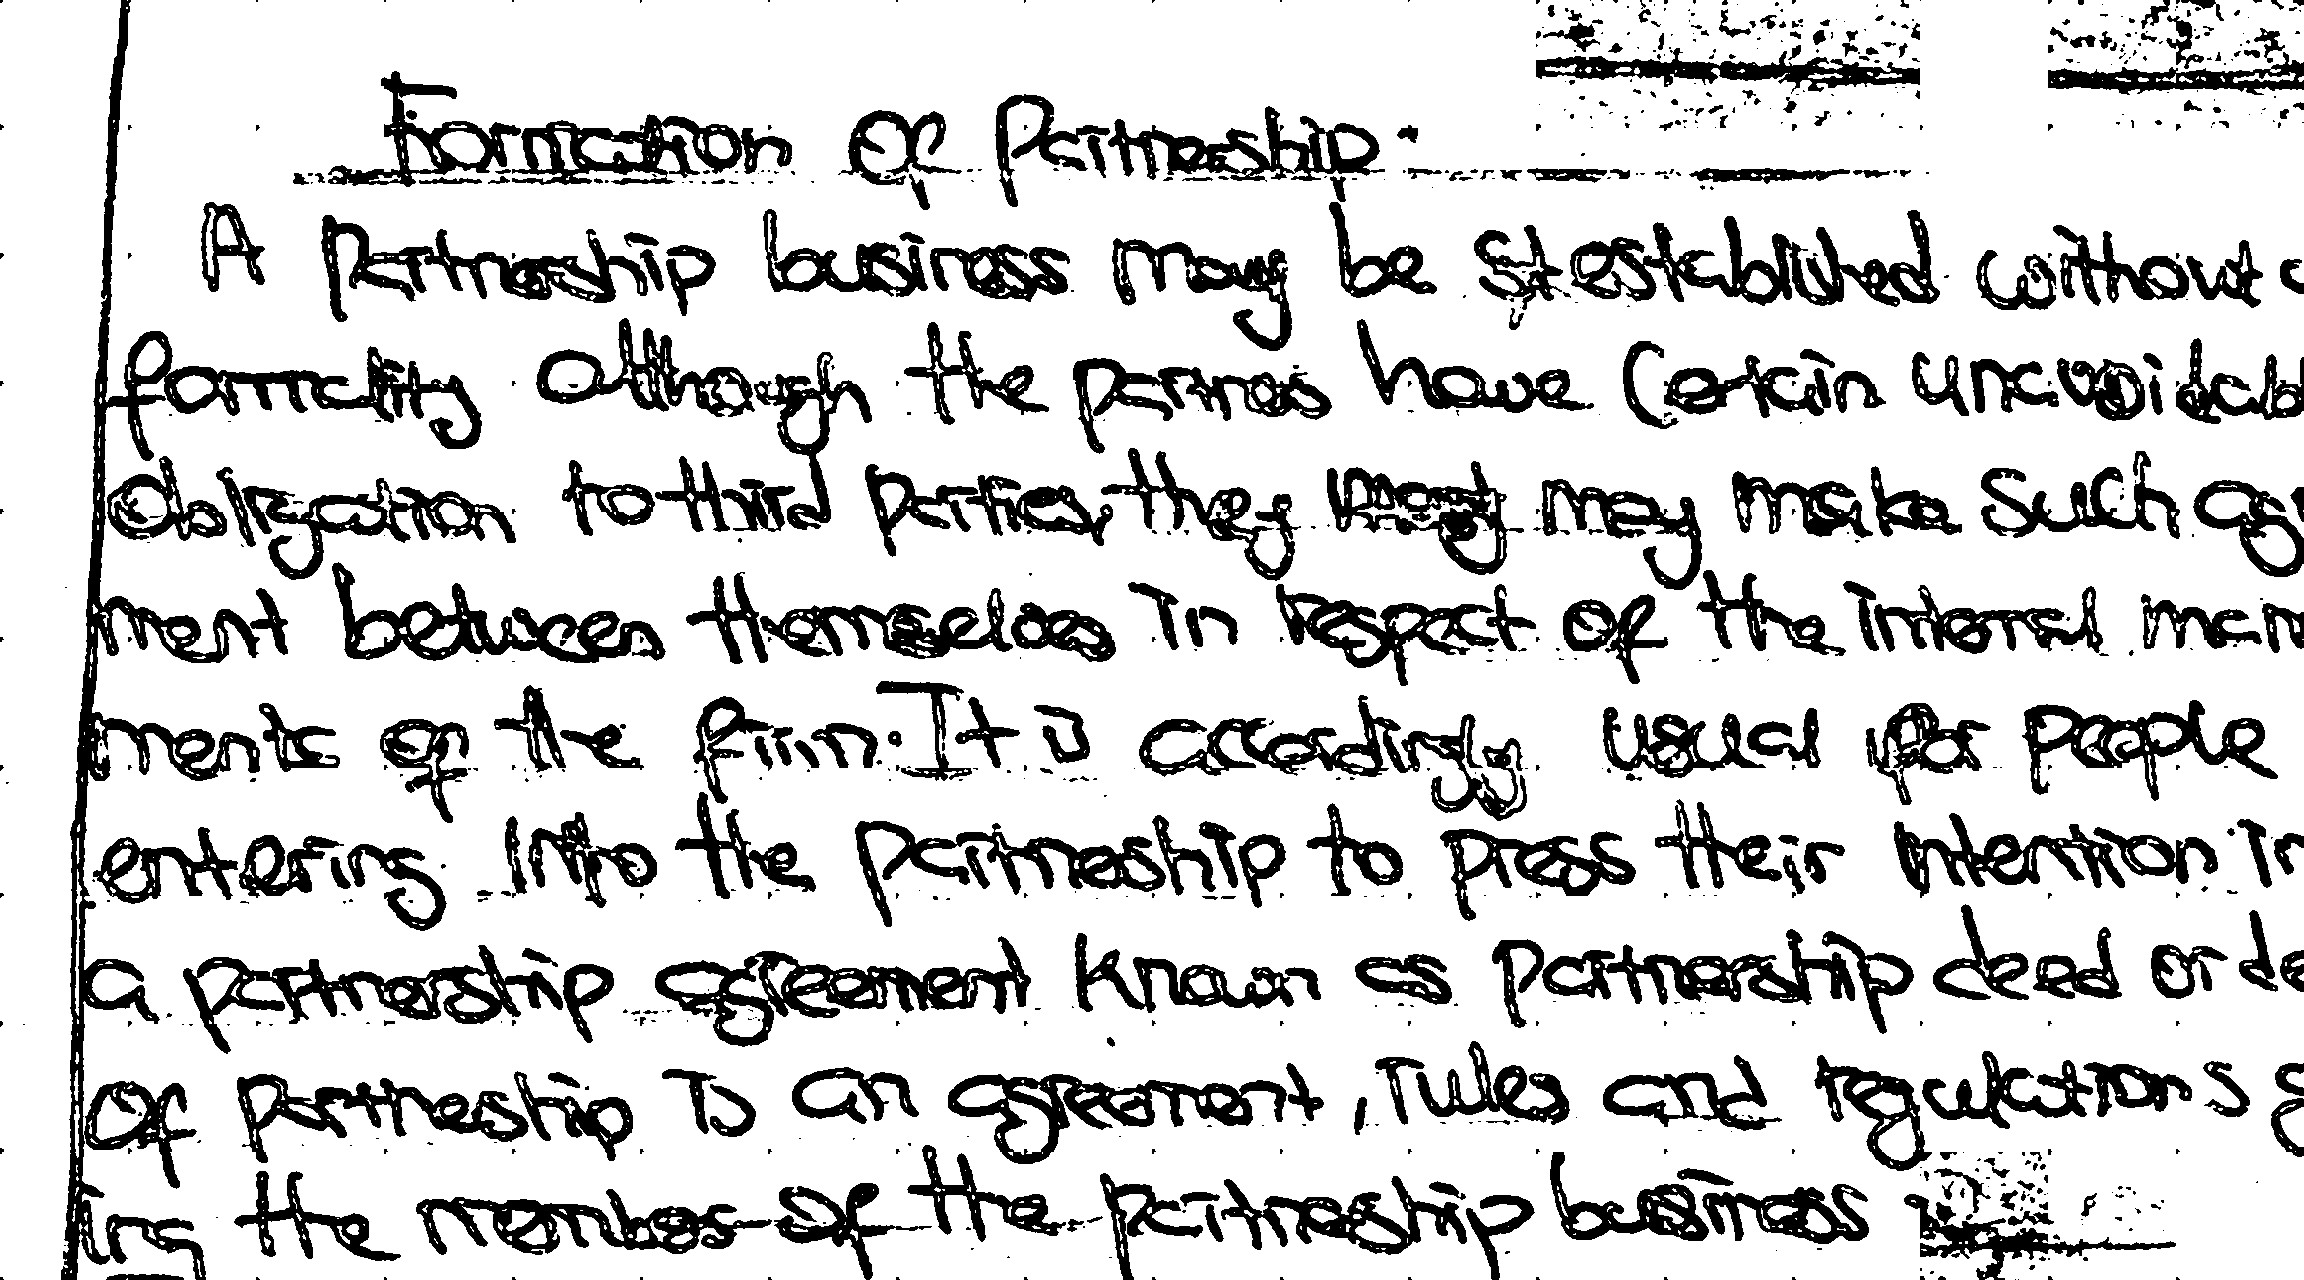 Formation Of Partnership.
A Partnership business may be established without a
formality although the partners have Certain unavoidabl
Obligation to third parties, they may make such agr
ment between themselves in respect of the internal man
ments of the firm. It is accordingly usual for people
entering into the partnership to press their intention in
a partnership agreement known as partnership deed or de
Of partnership is an agreement, rules and regulations g
ing the members of the partnership business